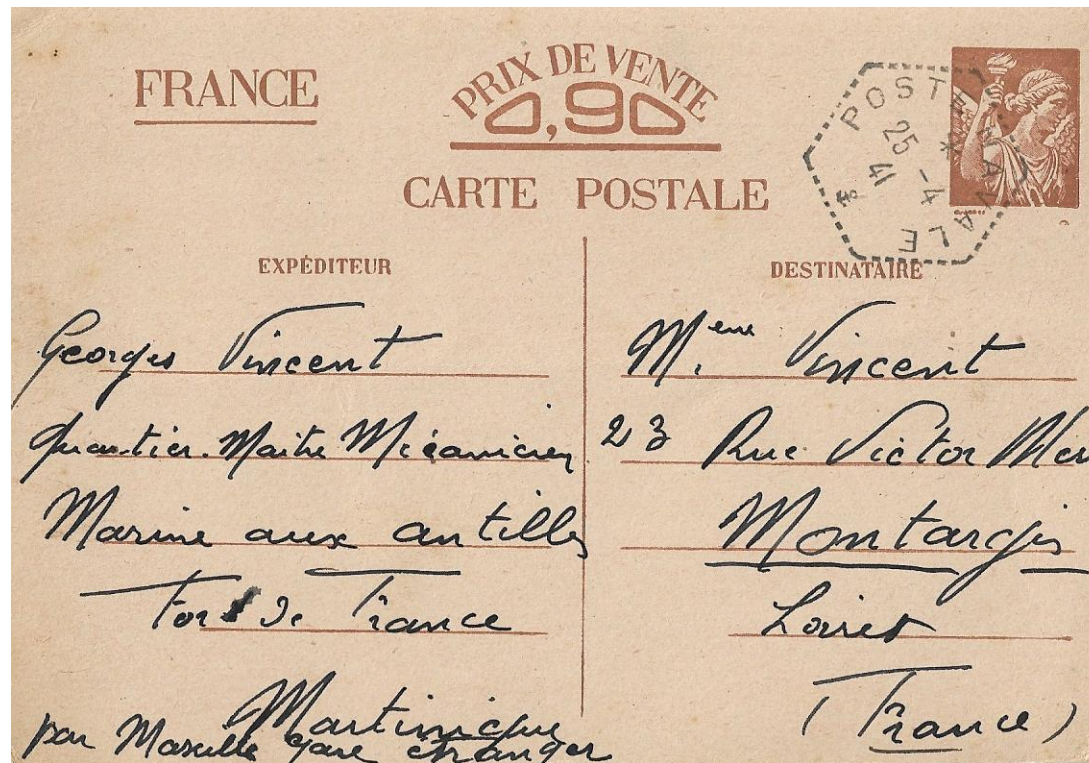 FRANCE
PRIX DE VENTE
0,90
CARTE POSTALE
POSTE NAVALE
25 -4
41
EXPÉDITEUR
Georges Vincent
Quartier-Maitre Mécanicien
Marine aux antilles
Fort de France
Martinique
par Marseille gare étranger
DESTINATAIRE
M.eme Vincent
23 Rue Victor
Montargis
Loiret
(France)